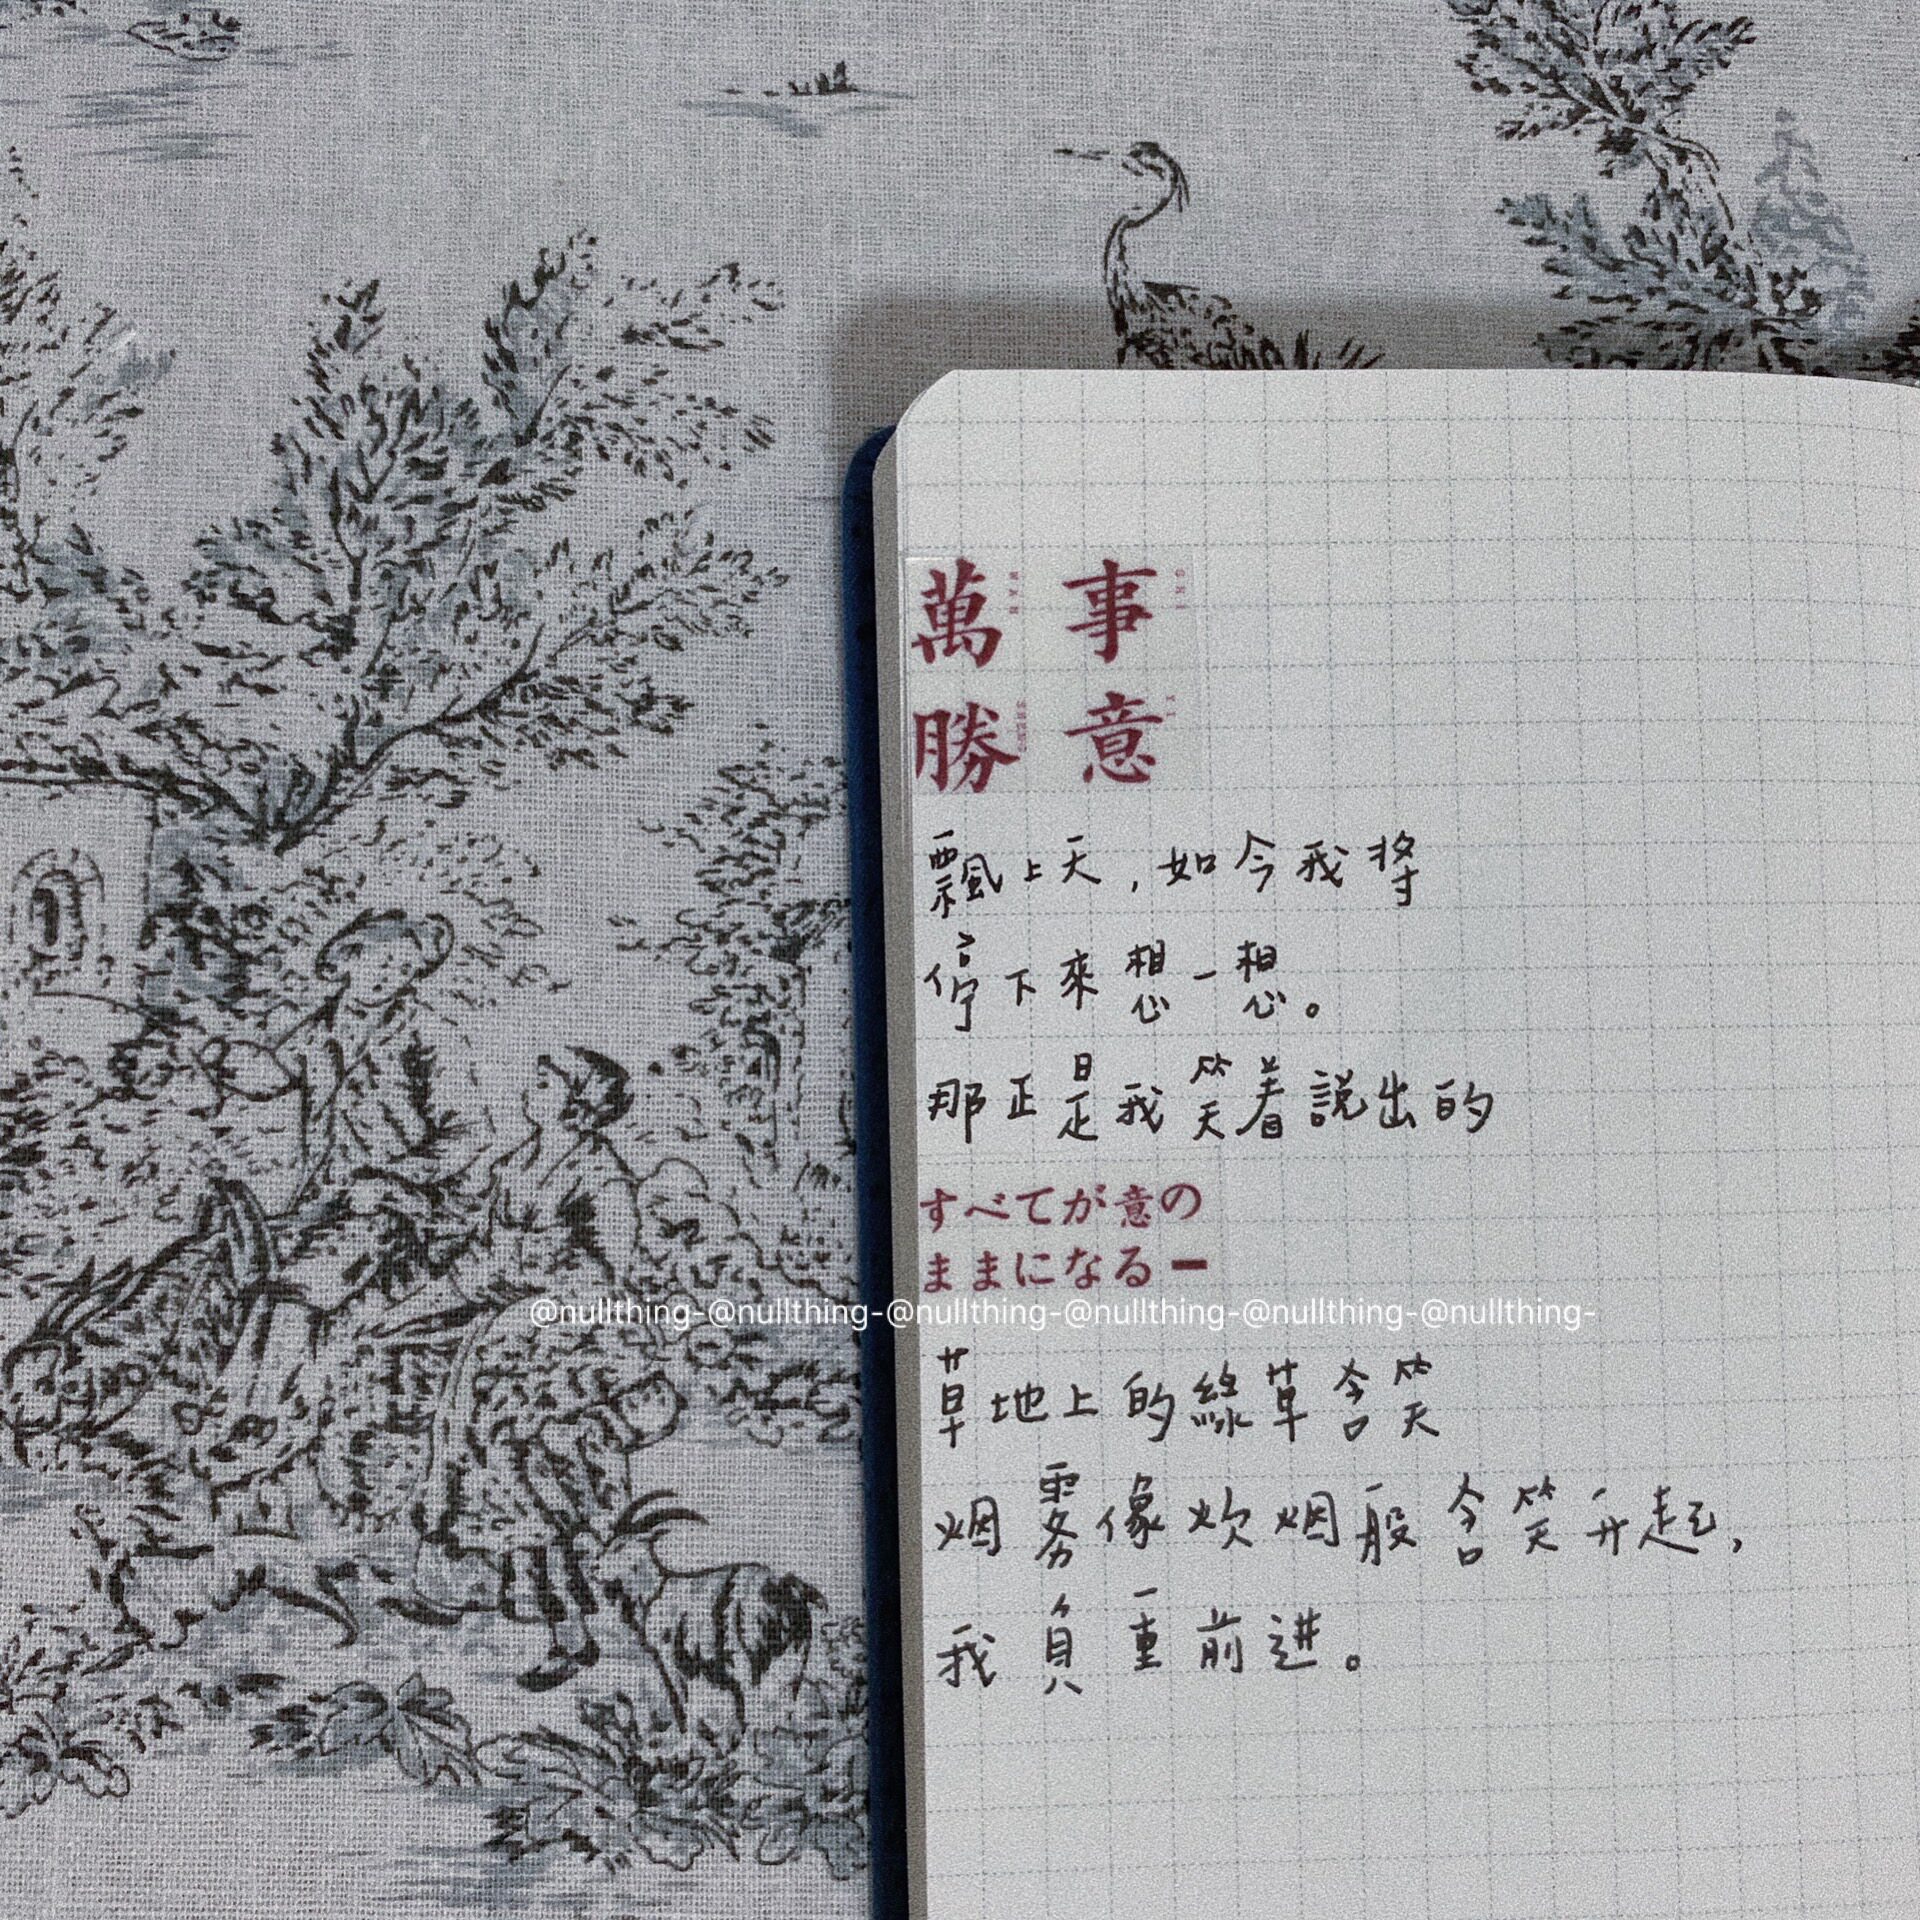 萬事
勝意
飄上天，如今我将
停下來想一想。
那正是我笑着説出的
すべてが意の
ままになるー
@nullthing-@nullthing-@nullthing-@nullthing-@nullthing-@nullthing-
草地上的綠草含笑
烟雾像炊烟般含笑升起，
我負重前进。